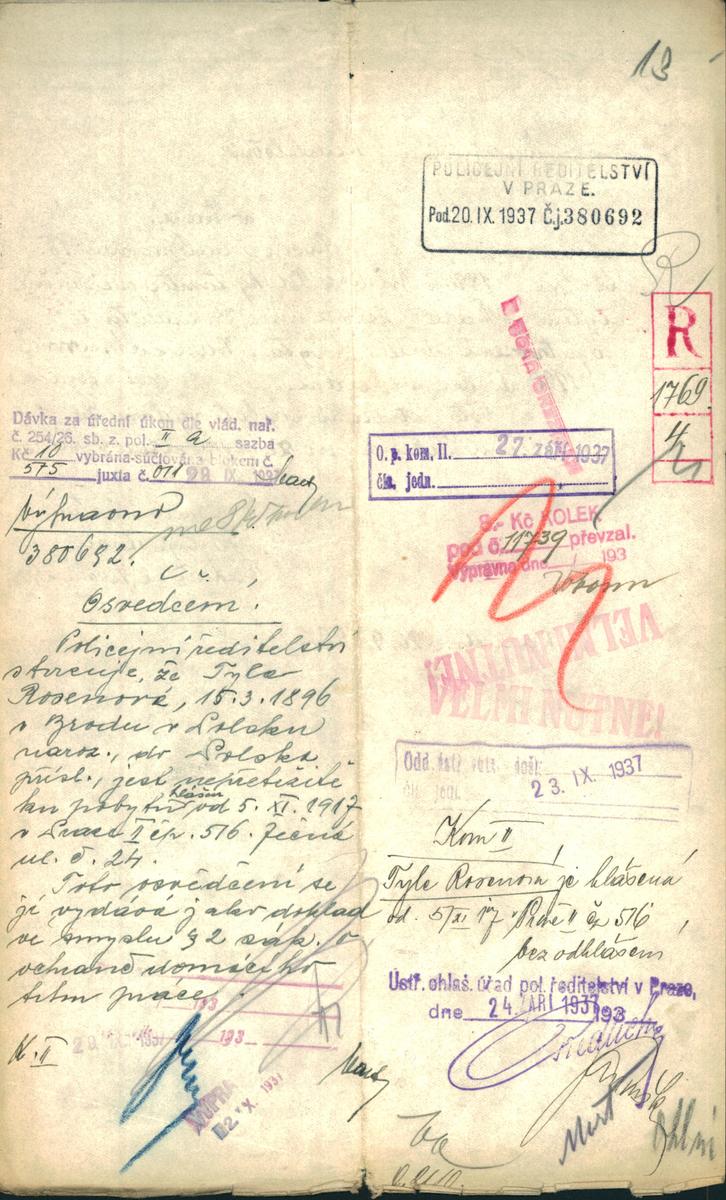 13
POLICEJNÍ ŘEDITELSTVÍ
V PRAZE.
Pod. 20. IX. 1937 Č.j. 380692
R
1769
4
Dávka za úřední úkon dle vlád. nař.
č. 254/26. sb. z. pol. II a sazba
Kč 10 vybrána-súčtována blokem č.
575 juxta č. 011 29 IX. 1937
O. p. kom. II. 27. září 1937
čís. jedn.
8.- Kč KOLEK
pod č. 11739 převzal.
Výpravna dne 193
380692.
Osvědčení.
Policejní ředitelství
stvrzuje, že Tyle
Rosenová, 15.3.1896
v Brodu v Polsku
naroz., do Polska
přísl., jest nepřetržitě
ku pobytu hlášen od 5. XI. 1917
v Praze II čp. 516. Ječná
ul. č. 24.
Toto osvědčení se
jí vydává jako doklad
ve smyslu § 2 zák. o
ochraně domácího
trhu práce.
K. II
193
29 IX 1937 193
2. X. 1937
VELMI NUTNÉ!
VELMI NUTNÉ!
23. IX. 1937
Kom II
Tyle Rosenová je hlášená
od 5/XI 17 Praze II čp 516
bez odhlášení
Ústř. ohlaš. úřad pol. ředitelství v Praze,
dne 24. ZÁŘÍ 1937 193